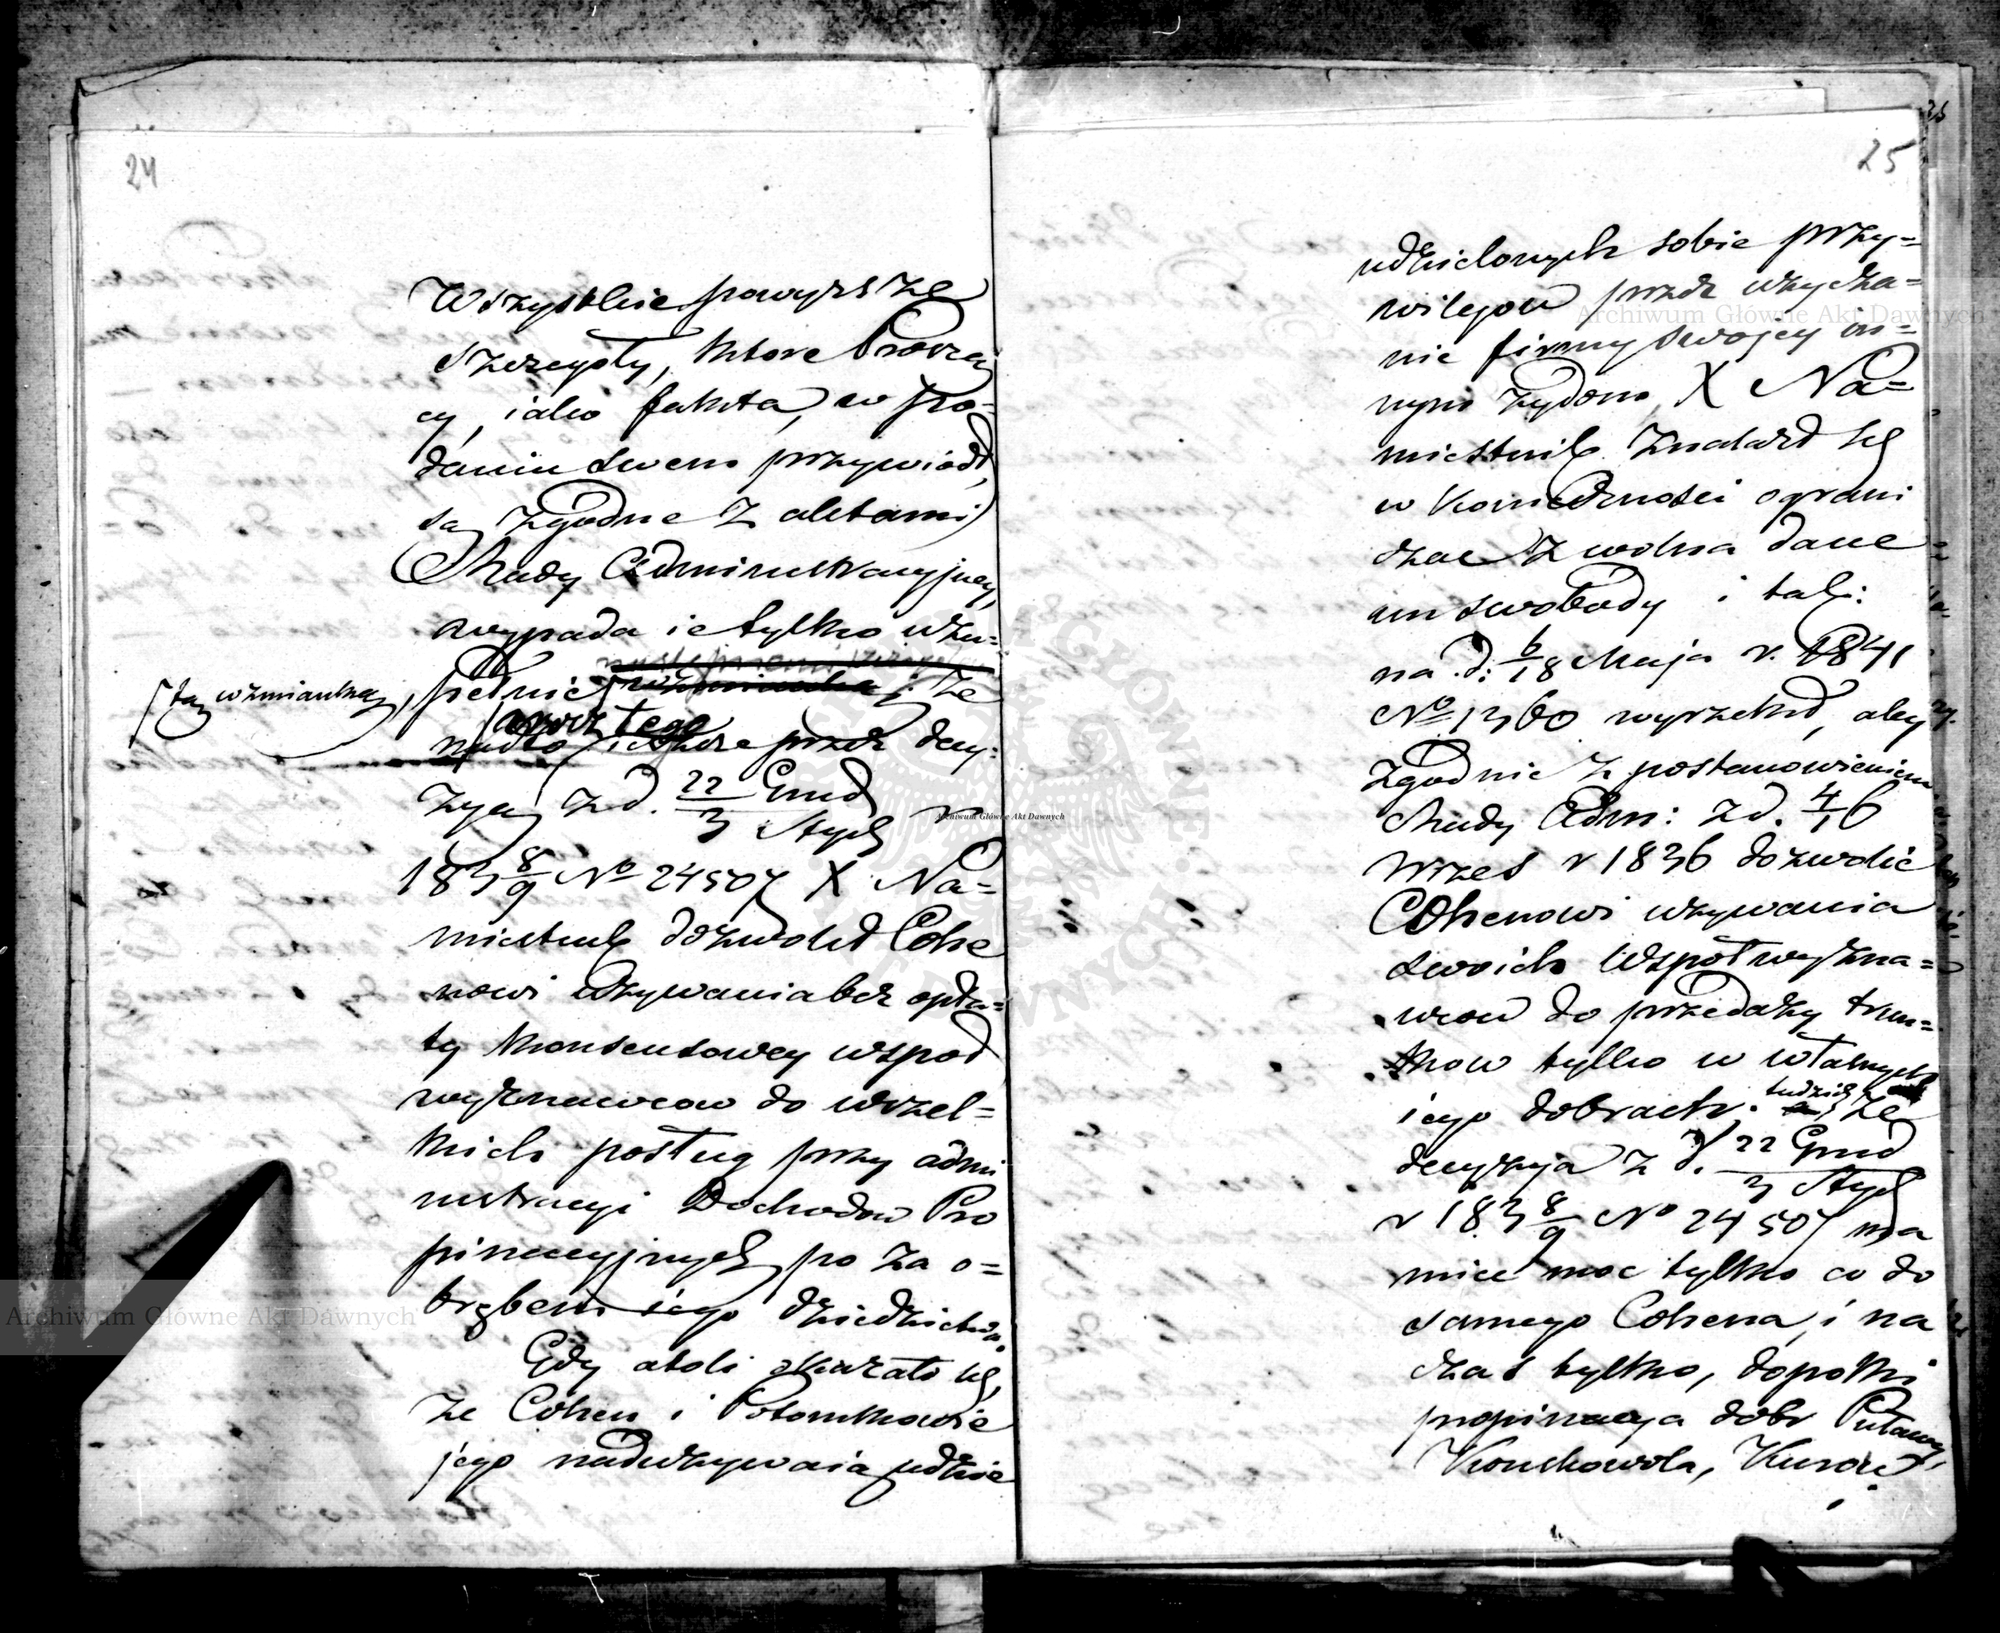 24
Wszystkie powyższe
szczegóły, które Proszą
cy, iako fakta, w po=
daniu swem przywiódł,
są zgodne z aktami
Rady Administracyjney,
wypada ie tylko uzu=
pełnić tą wzmianką, że
oprócz tego ieszcze przez decy:
zyą z d. 22 Grud / 3 Stycz r
183 8/9 No 24507 X Na=
miestnik dozwolił Cohe
nowi używania bez opła=
ty konsensowey współ
wyznawców do wszel=
kich posług przy admi
nistracyi Dochodów Pro
pinacyjnych po za o=
brębem iego dziedzictwa.
Gdy atoli okazało się,
że Cohen i Potomkowie
jego nadużywaią udzie
25
udzielonych sobie przy=
wilejów przez użycza=
nie firmy swojey in=
nym żydom, X Na=
miestnik znalazł się
w konieczności ograni
czać z wolna dane
im swobody i tak:
na d: 6/18 Maja r. 1841
No 1360 wyrzekł, aby
zgodnie z postanowieniem
Rady Adm: z d. 4/16
Wrześ r 1836 dozwolić
Cohenowi używania
swoich Współwyzna=
wców do przedaży trun=
ków tylko w własnych
iego dobrach. tudzież że
decyzyja z d. 22 Grud / 3 Stycz
r 183 8/9 No 24507 ma
mieć moc tylko co do
samego Cohena, i na
czas tylko, dopóki
propinacya dóbr Puławy,
Końskowola, Kurów
i
Archiwum Główne Akt Dawnych
Archiwum Główne Akt Dawnych
Archiwum Główne Akt Dawnych